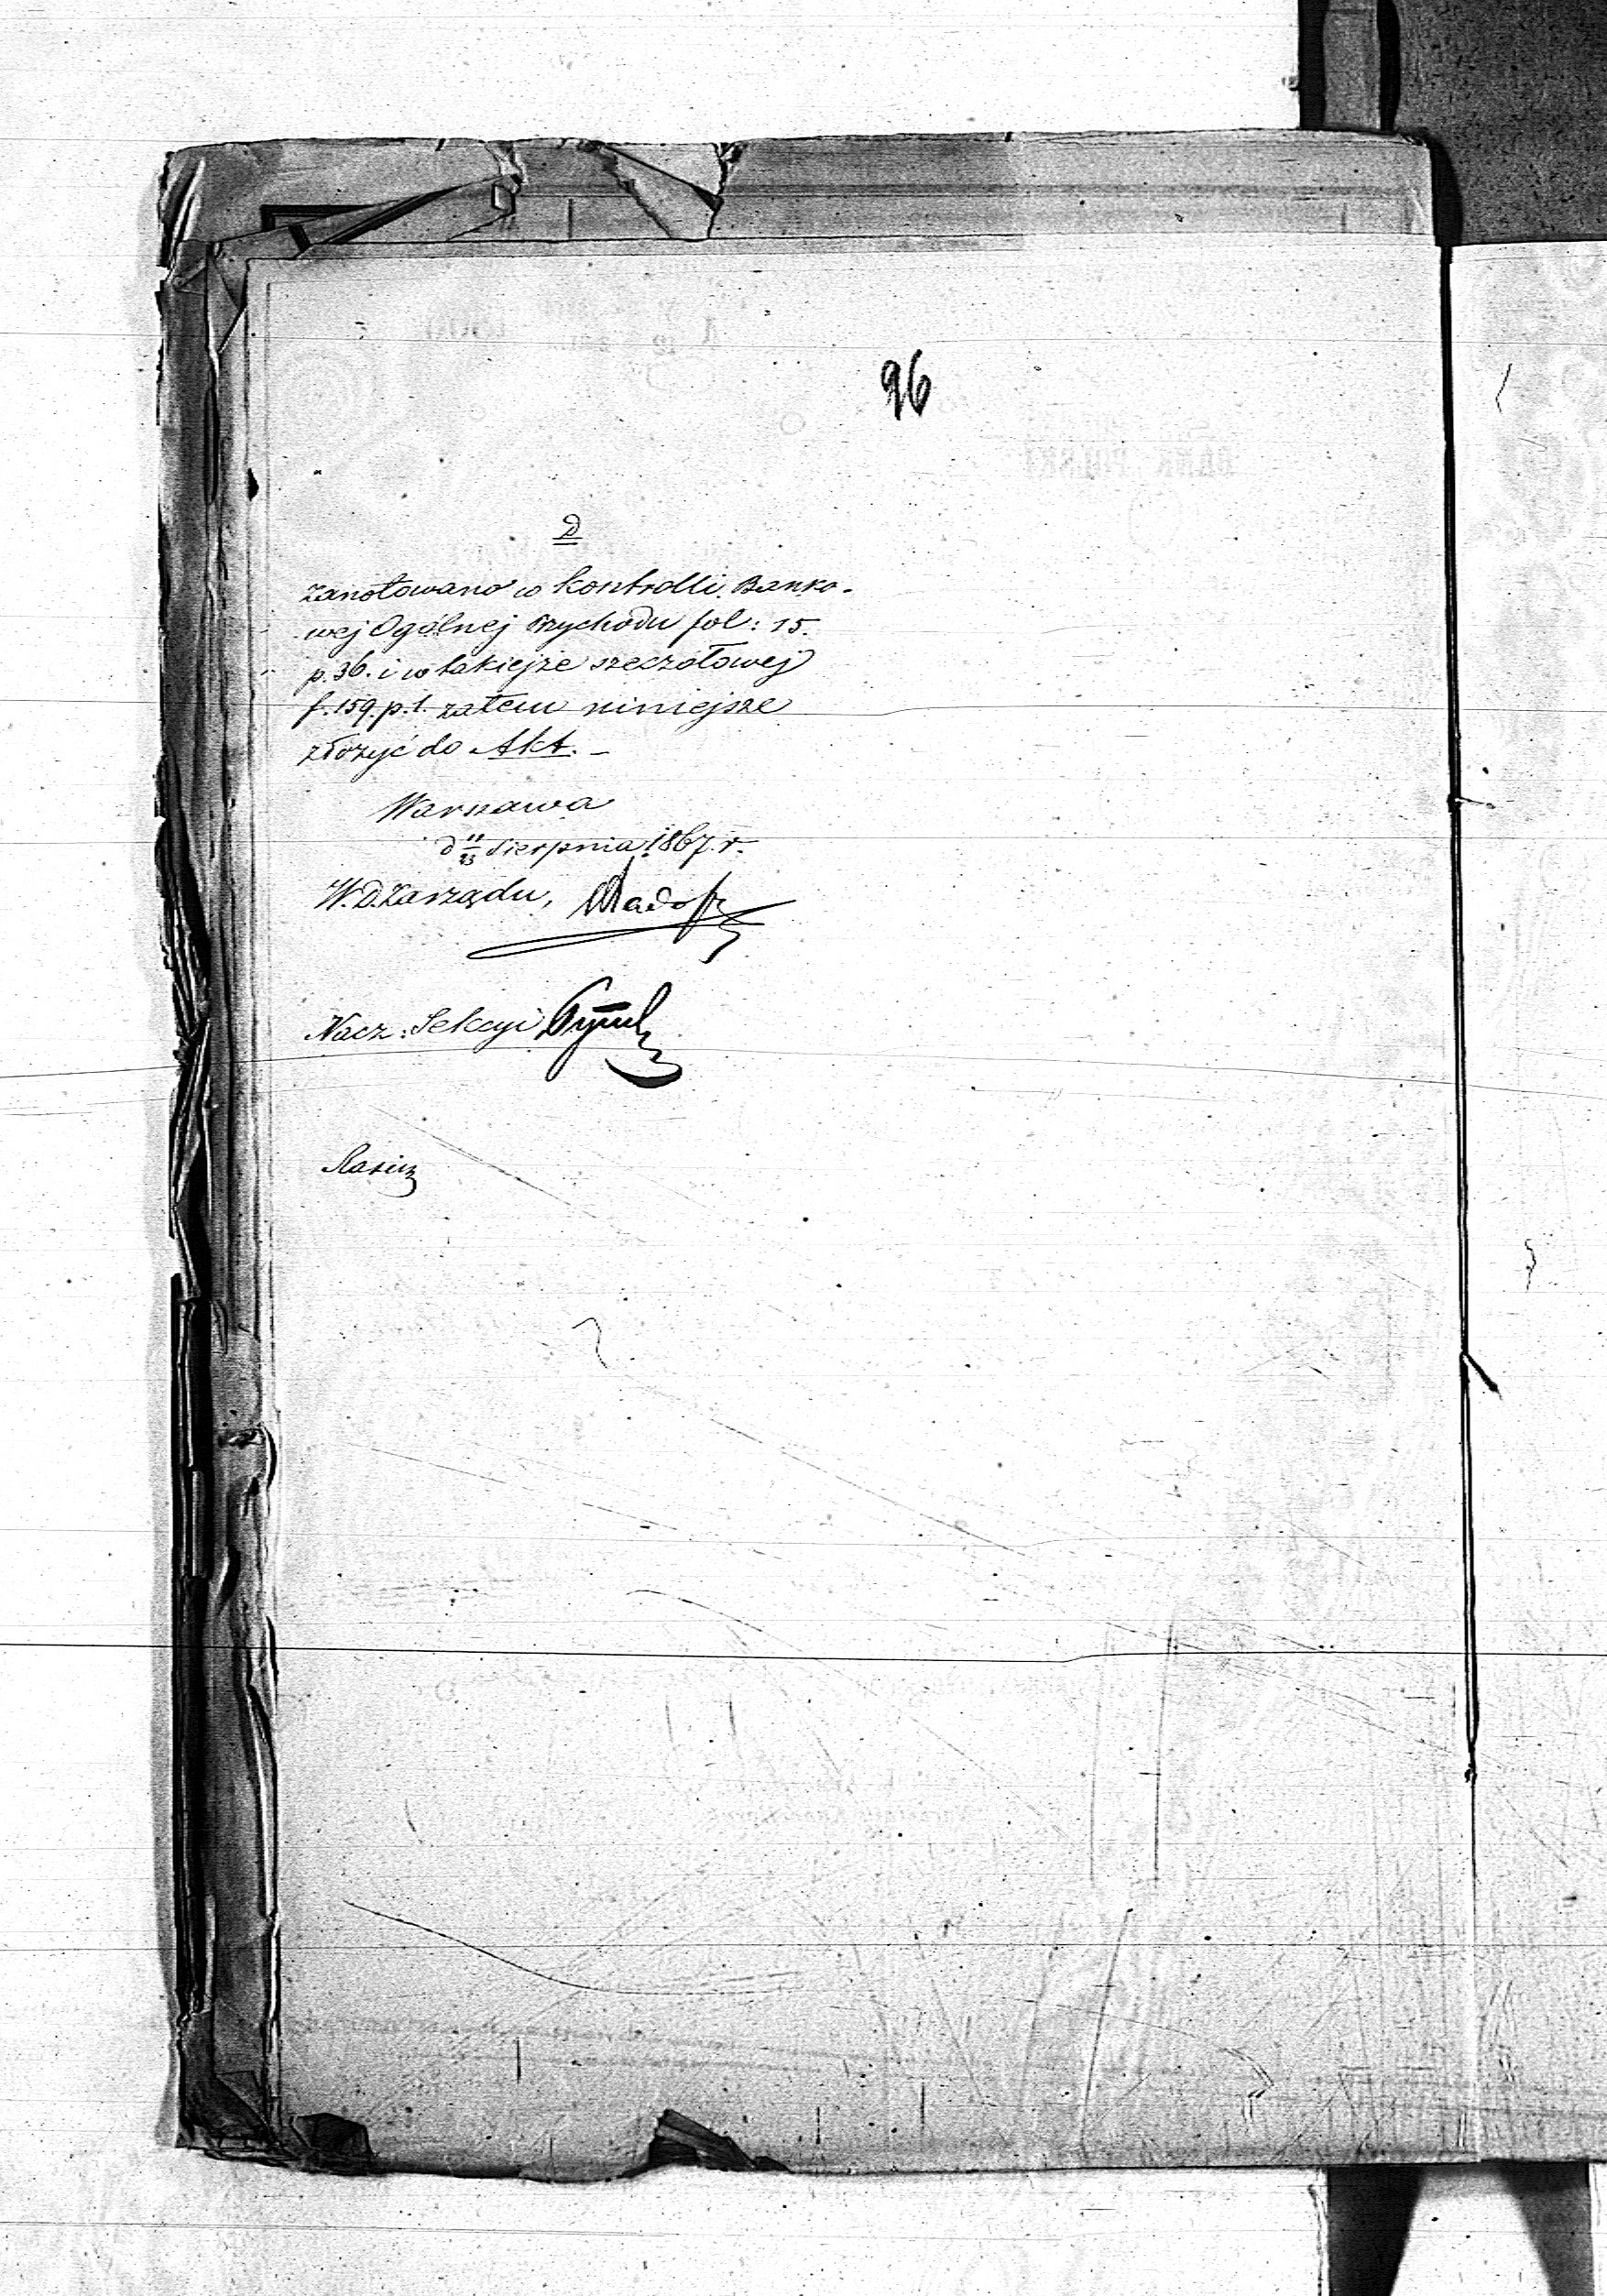 96
D
Zanotowano w Kontrolli Banko-
wej Ogólnej Przychodu fol: 15.
p. 36. i w takiejże szeczołowej
f. 159. p. 1. zatem niniejsze
złożyć do Akt. –
Warszawa
d 11/23 Sierpnia 1867. r.
W. D. Zarządu,
Nacz: Sekcyi